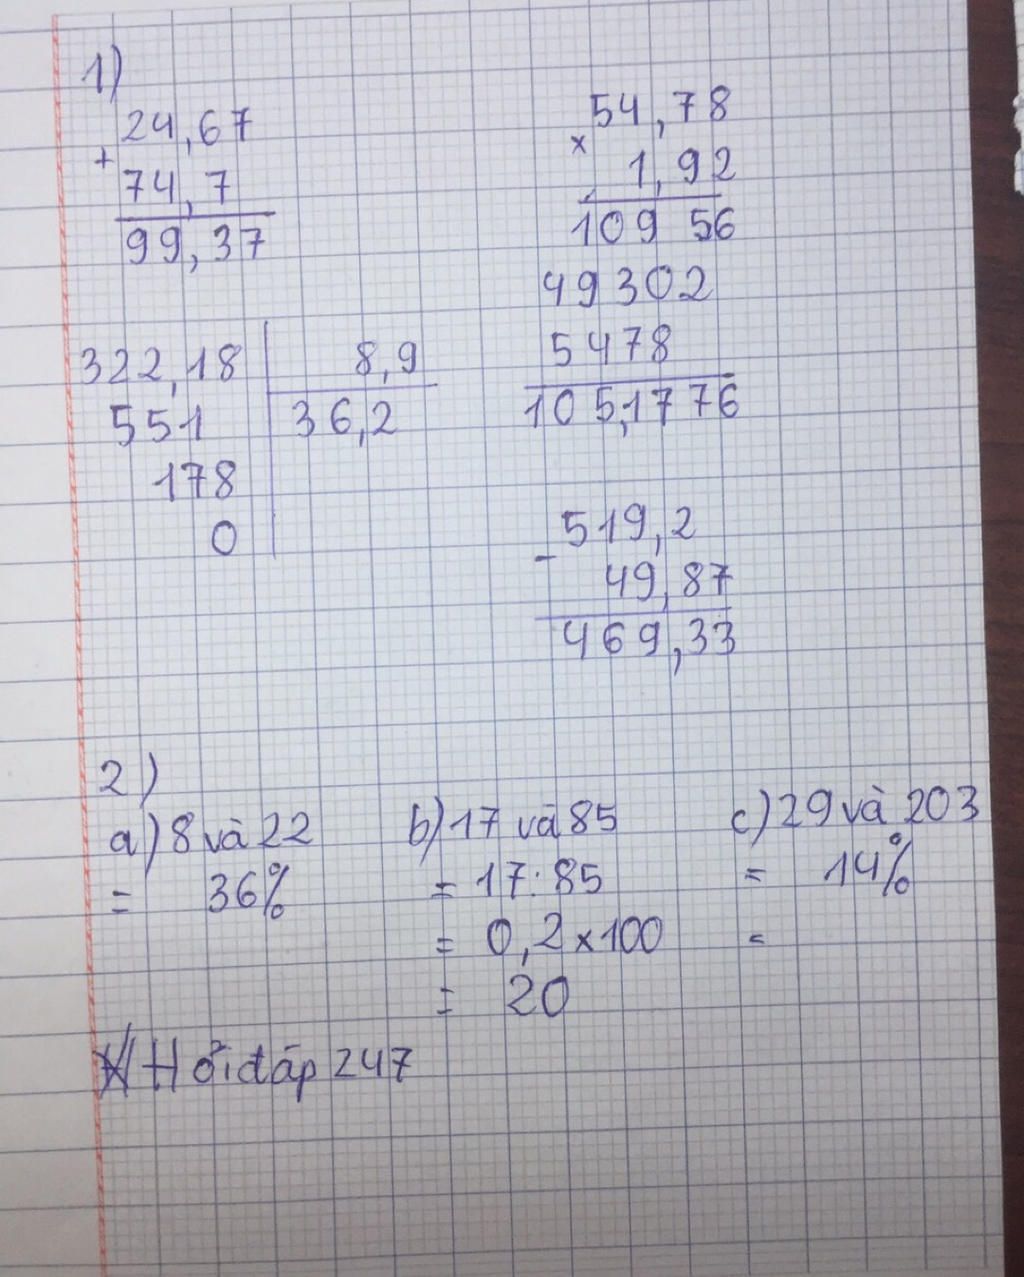 1)
24,67
+
74,7
99,37
54,78
x
1,92
109 56
49302
5478
105,1776
322,18 8,9
551 36,2
178
0
519,2
-
49,87
469,33
2)
a) 8 và 22
= 36%
b) 17 và 85
= 17:85
= 0,2 x 100
= 20
c) 29 và 203
= 14%
=
Hỏi đáp 247